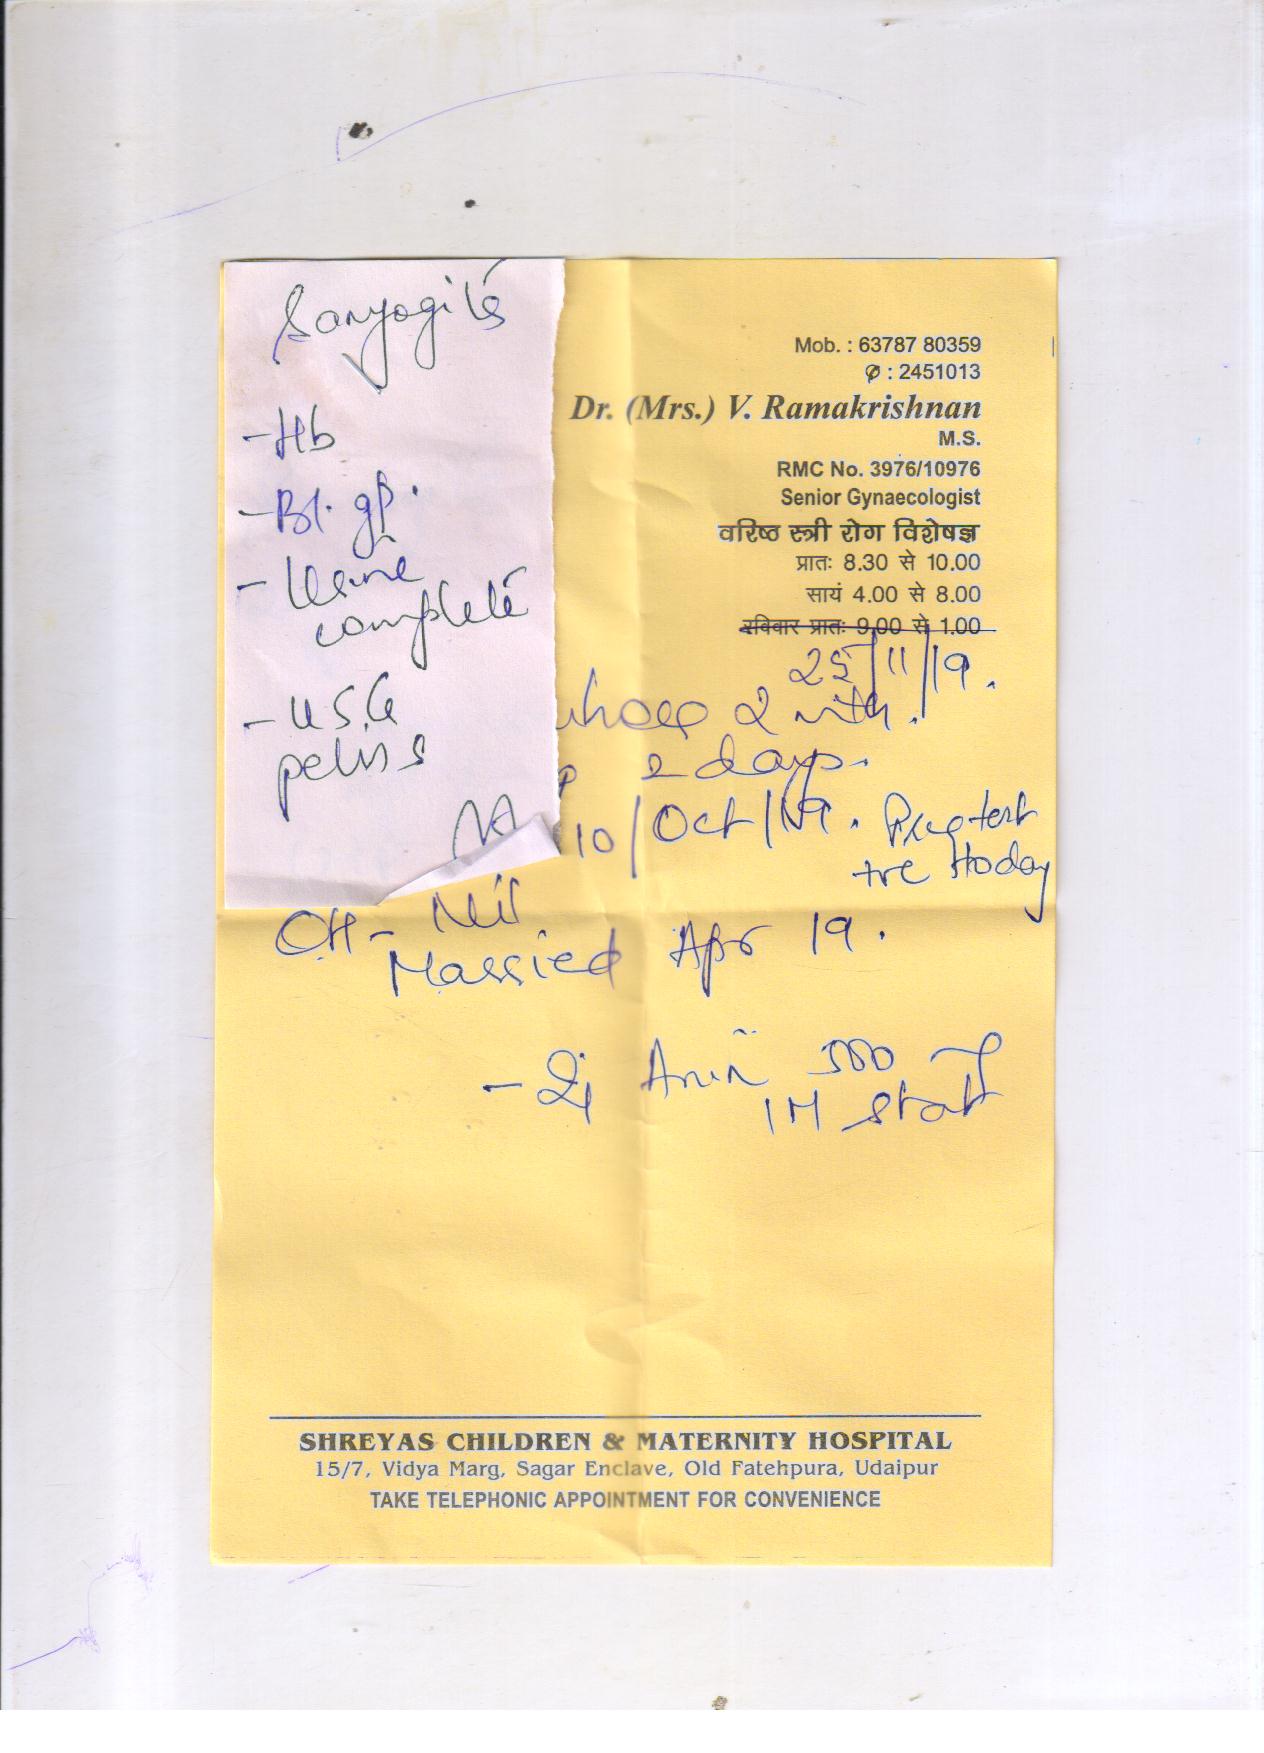 Sanyogita
- Hb
- Bl. gp.
- Urine
complete
- U.S.G
pelvis
Mob. : 63787 80359
✆ : 2451013
Dr. (Mrs.) V. Ramakrishnan
M.S.
RMC No. 3976/10976
Senior Gynaecologist
वरिष्ठ स्त्री रोग विशेषज्ञ
प्रातः 8.30 से 10.00
सायं 4.00 से 8.00
रविवार प्रातः 9.00 से 1.00
25/11/19.
2 mth.
2 days.
10/Oct/19. Preg test
+ve today
OH - Nil
Married Apr 19.
500
IM stat
SHREYAS CHILDREN & MATERNITY HOSPITAL
15/7, Vidya Marg, Sagar Enclave, Old Fatehpura, Udaipur
TAKE TELEPHONIC APPOINTMENT FOR CONVENIENCE